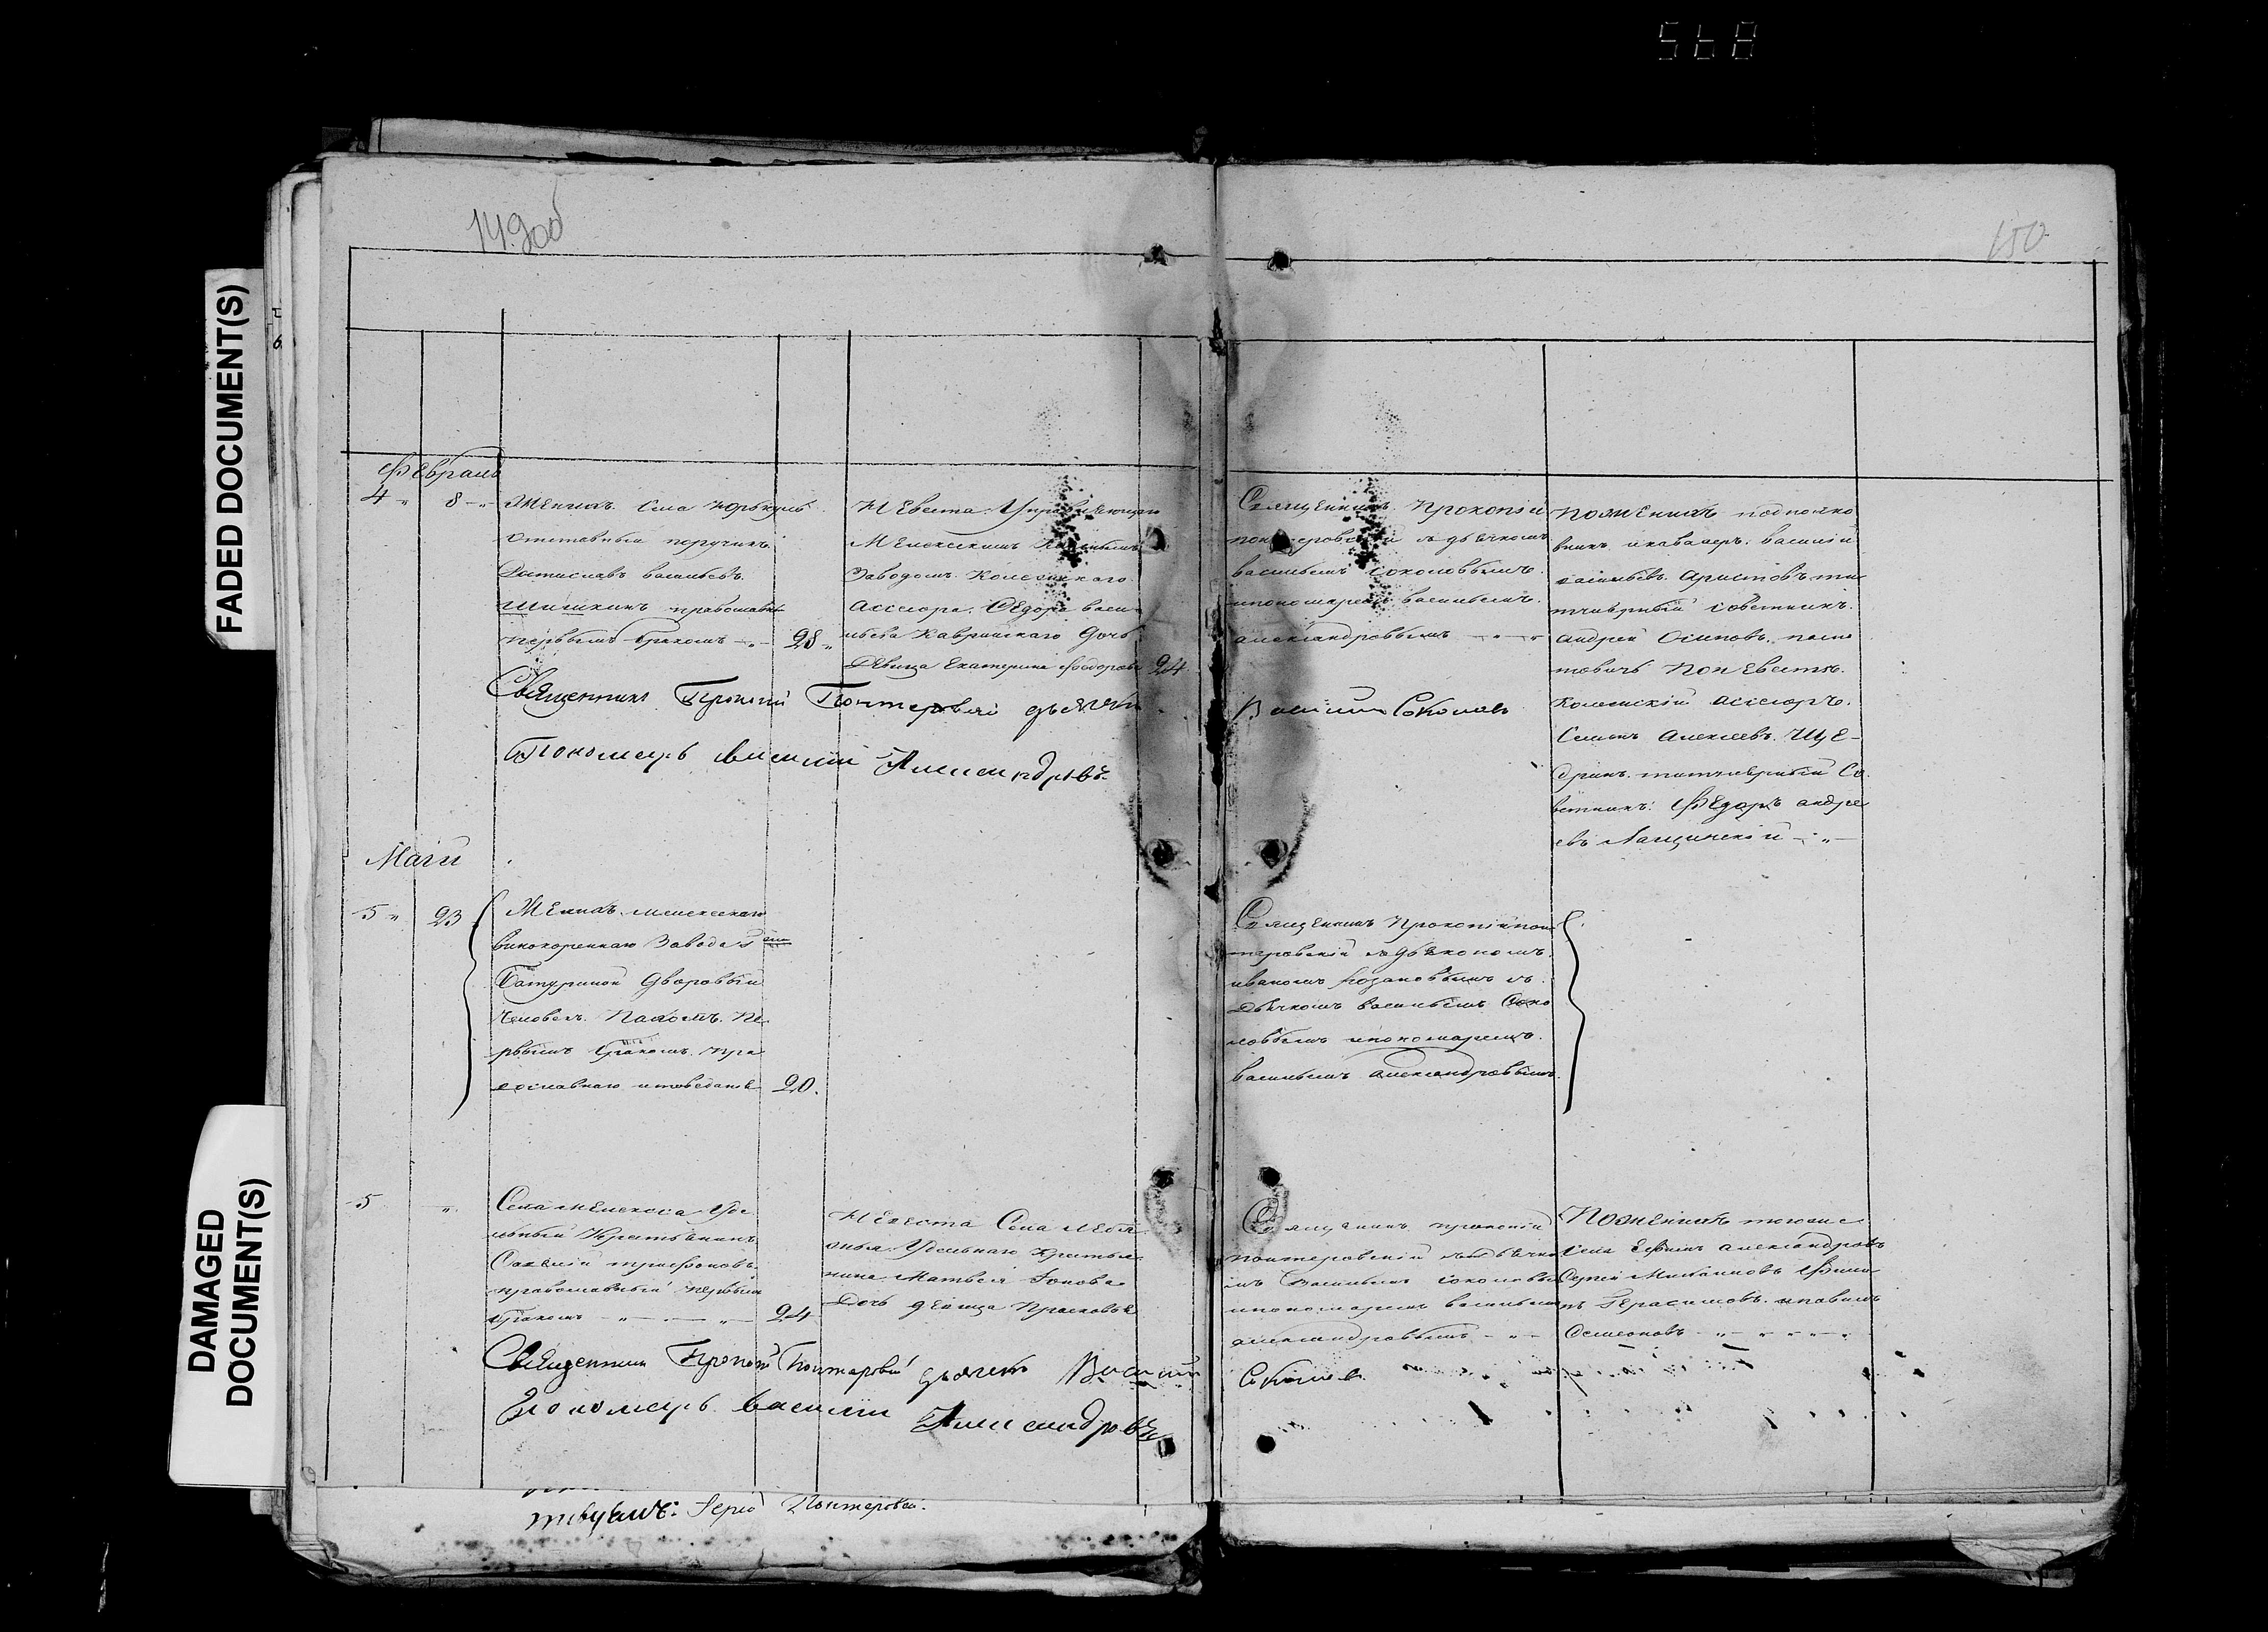 568
FADED DOCUMENT(S)
DAMAGED DOCUMENT(S)
149об
150
Февраль
4 " 8 "
Женихъ Села Юрькуль
Отставный поручикъ
Ростиславъ васильевъ
Шишкинъ православн
первымъ бракомъ 28
Невеста Управляющаго
Мелекескимъ Казеннымъ
Заводомъ Колежскаго
Ассесора Федора васи
льева Кавринскаго дочь
Девица Екатерина Феодорова 24
Священникъ Прокопій
понтеровскій дьячкомъ
васильемъ Соколовымъ
ипономаремъ васильемъ
александровымъ
Поженихъ подполко
вникъ икавалеръ василій
васильевъ Аристовъ ти
тулярный Советникъ
андрей Осиповъ
Поневестъ
Колежскій Ассесоръ
Семенъ Алексеевъ Ще-
дринъ титулярный Со
ветникъ Федоръ андре
евъ Лащинскій
Священникъ Прокопій Понтеровскій дьячекъ Василій Соколовъ
Пономарь Василій Александровъ
Маій
5 " 23
Женихъ мелекескаго
винокореннаго Завода Гжи
Батуриной Дворовый
Человекъ Пахомъ Пе
рвымъ бракомъ пра
вославнаго исповеданія 20.
Священникъ Прокопій пон
теровскій съдьякономъ
иваномъ Розановымъ съ
Дьячкомъ васильемъ Соко
ловымъ ипономаремъ
васильемъ александровымъ
5 "
Села мелекеса Уде
льный Крестьянинъ
Савелій трифоновъ
православный первымъ
бракомъ 24
Невеста Села лебя
жья Удельнаго Крестья
нина Матвея Іонова
Дочь девица Прасковья
Священникъ прокопій
понтеровскій сдьячко
мъ Васильемъ соколовы
ипономаремъ васильемъ
александровымъ
Поженихъ тогоже
Села Ефимъ александровъ
Сергей Михаиловъ Фили
пъ Герасимовъ ипавелъ
Семеновъ
Священникъ Прокопій Понтеровскій дьячекъ Василій Соколовъ
Пономарь Василій Александровъ
Іерей Понтеровскій.